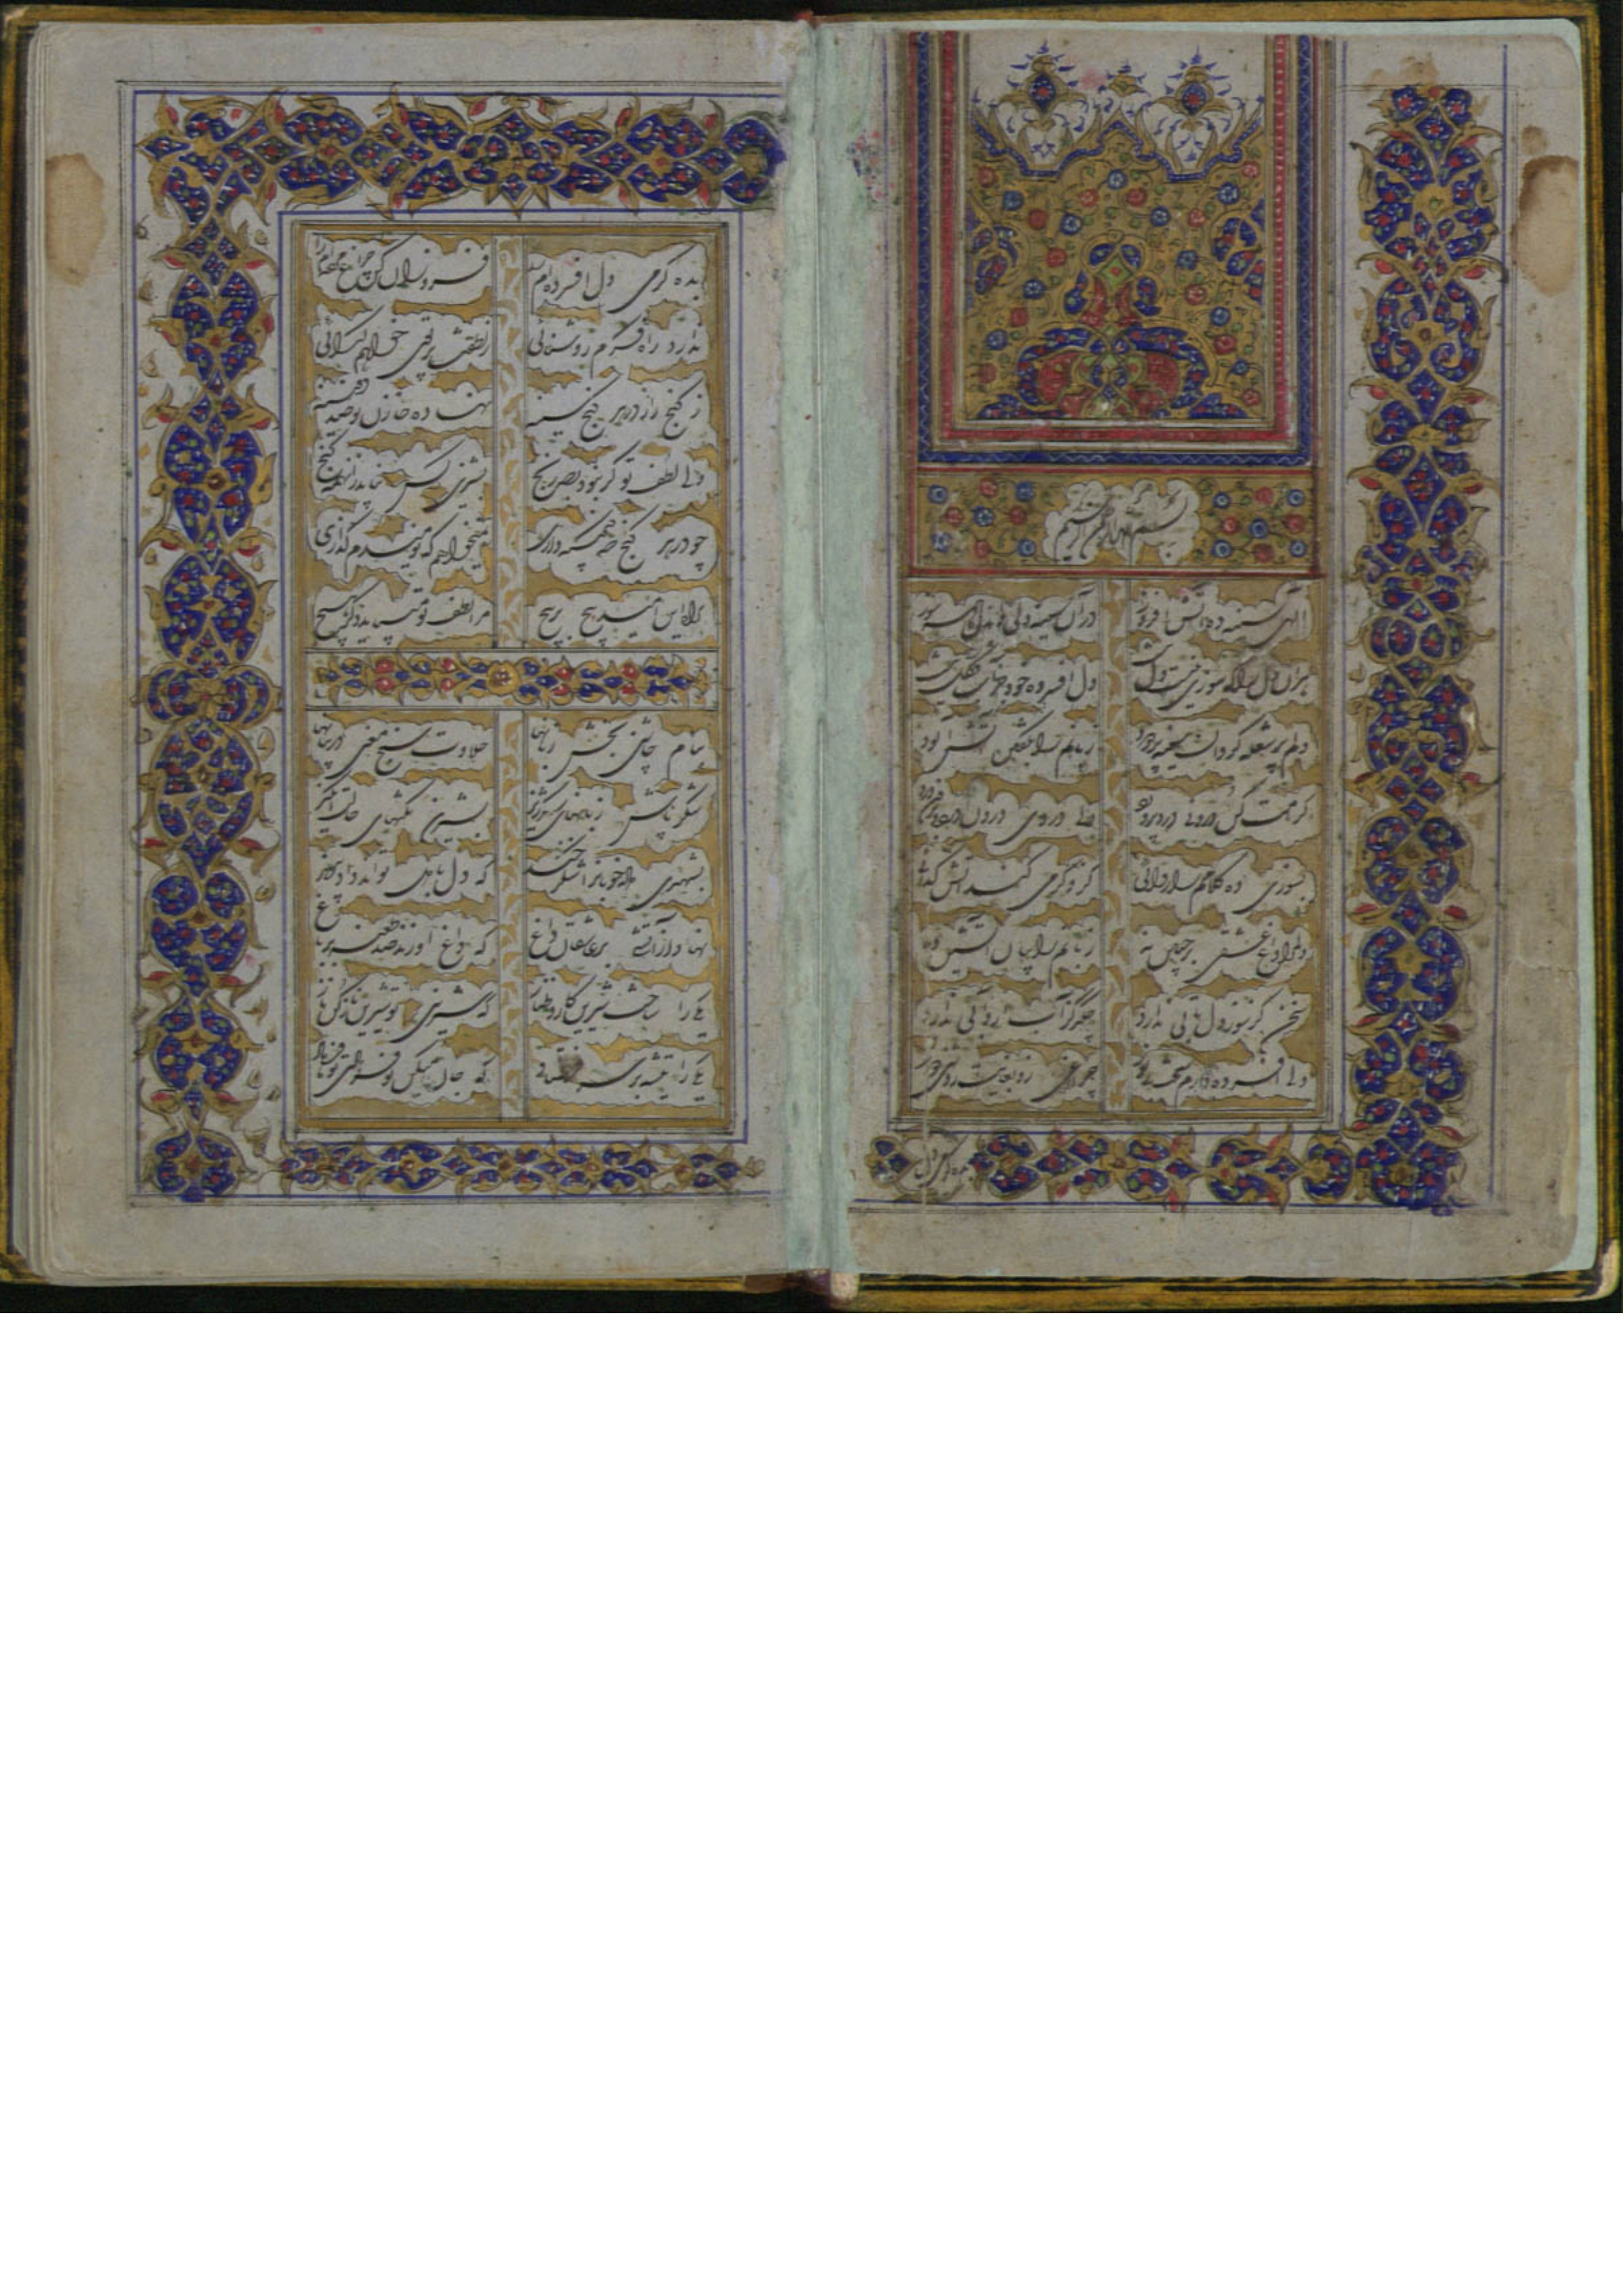 بسم الله الرحمن الرحیم
الهی سینه ده آتش افروز در آن سینه دلی وان دل همه سوز
هر آن دل را که سوزی نیست دل نیست دل افسرده خود جز آب و گل نیست
دلم پر شعله گردان سینه پر دود زبانم را بگفتن آتش آلود
کرامت کن درونی درد پرورد دلی در وی درون درد و برون درد
بسوزی ده کلامم را روائی کزو گرمی کند آتش گدائی
دلم را داغ عشقی بر جبین نه زبانم را بیان آتشین ده
سخن کز سوز دل تابی ندارد چکد گر آب ازو آبی ندارد
دلی افسرده دارم سخت بی نور چراغی زو بغایت روشنی دور
بده گرمی دل
بده گرمی دل افسرده ام را فروزان کن چراغ مرده ام را
ندارد راه فکرم روشنائی ز لطفت پرتوی خواهم گدائی
ز گنج راز در هر کنج سینه نهاده خازن تو صد دفینه
ولی لطف تو گر نبود بصد رنج پشیزی کس نیابد زانهمه گنج
چو در هر کنج صد گنجینه داری نمیخواهم که نومیدم گذاری
براه این امید پیچ در پیچ مرا لطف تو میباید دگر هیچ
بنام چاشنی بخش زبانها حلاوت سنج معنی در بیانها
شکر پاش زبانهای شکرریز بشیرین نکتهای حالت انگیز
بشهدی داده خوبان را شکر خند که دل با دل تواند داد پیوند
نهاد از آتشی بر عاشقان داغ که داغ او زند صد طعنه بر باغ
یکی را ساخت شیرین کار و طناز که شیرینی تو شیرین ناز کن ناز
یکی را تیشه بر سر فرستاد که جان میکن تو فرهادی تو فرهاد